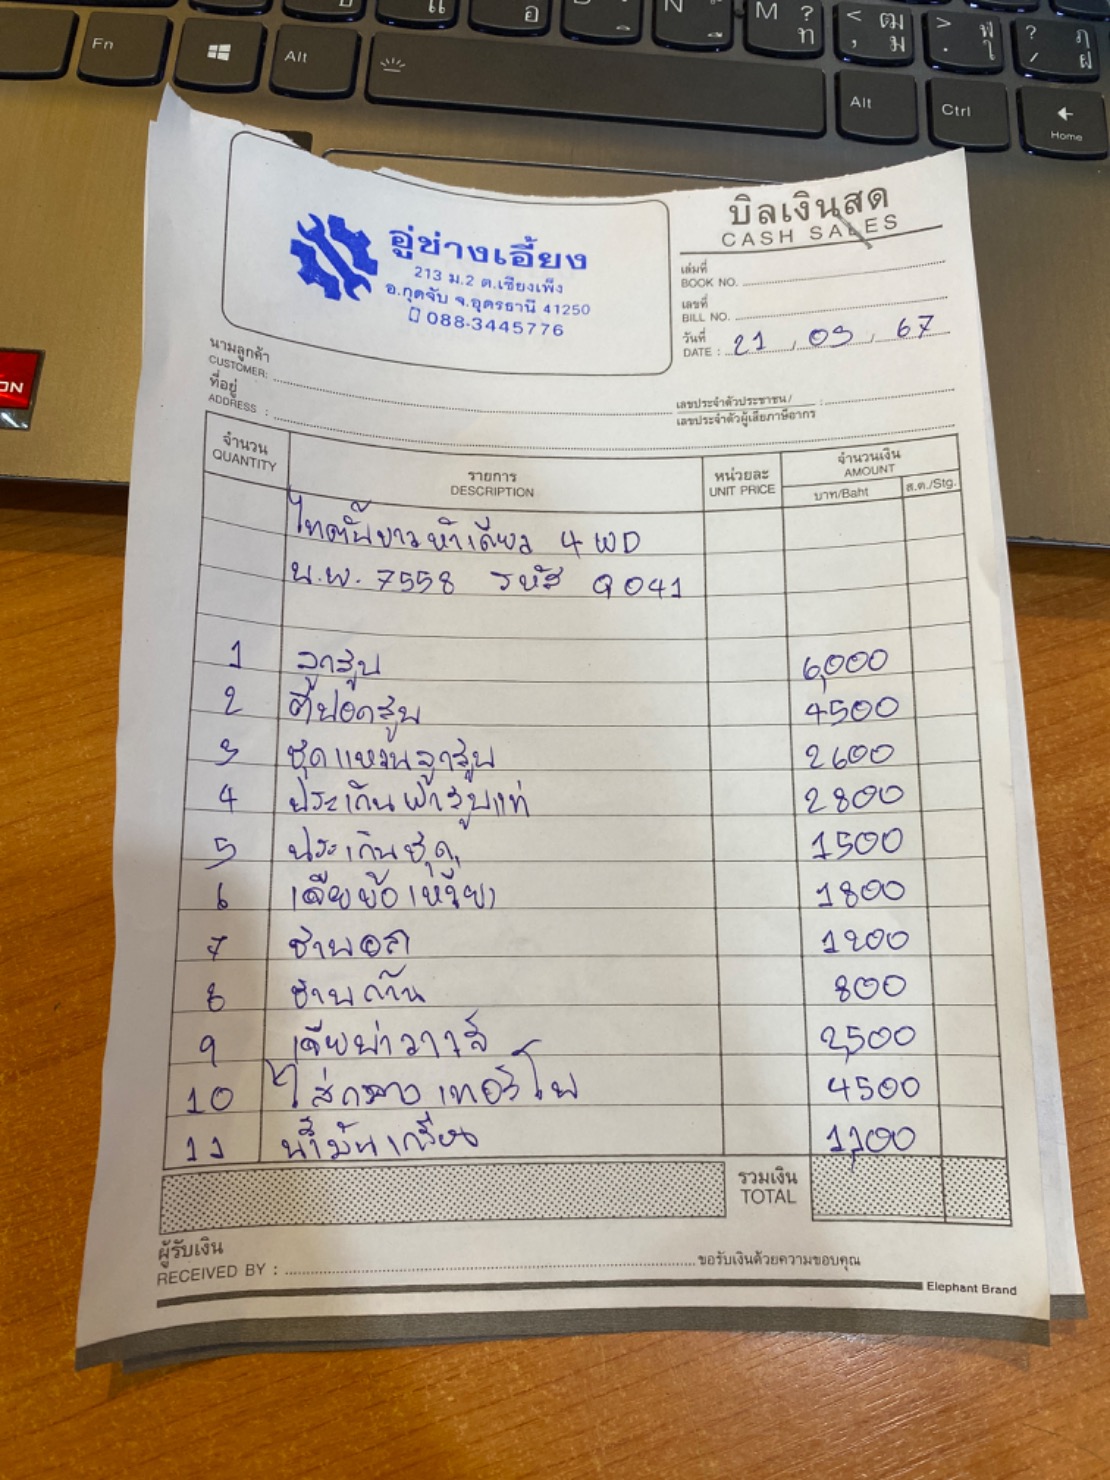 อู่ช่างเอี้ยง
213 ม.2 ต.เชียงเพ็ง
อ.กุดจับ จ.อุดรธานี 41250
088-3445776
บิลเงินสด
CASH SALES
เล่มที่
BOOK NO.
เลขที่
BILL NO.
วันที่
DATE : 21 , 09 , 67
นามลูกค้า
CUSTOMER:
ที่อยู่
ADDRESS :
เลขประจำตัวประชาชน/
เลขประจำตัวผู้เสียภาษีอากร
จำนวน QUANTITY
รายการ DESCRIPTION
หน่วยละ UNIT PRICE
จำนวนเงิน AMOUNT
บาท/Baht ส.ต./Stg.
ไทตันขาวหัวเดียว 4 WD
น.พ. 7558 รหัส Q041
1 ลูกสูบ 6,000
2 ตีปอกสูบ 4500
3 ชุดแหวนลูกสูบ 2600
4 ประเก็นฝาสูบแท่ 2800
5 ประเก็นชุด 1500
6 เจียข้อเหวี่ยง 1800
7 ชาพอก 1200
8 ชาพก้าน 800
9 เจียบ่าวาวล์ 2,500
10 ไส้กลางเทอร์โบ 4500
11 น้ำมันเครื่อง 1,100
รวมเงิน
TOTAL
ผู้รับเงิน
RECEIVED BY :
ขอรับเงินด้วยความขอบคุณ
Elephant Brand
Fn
Alt
Alt
Ctrl
Home